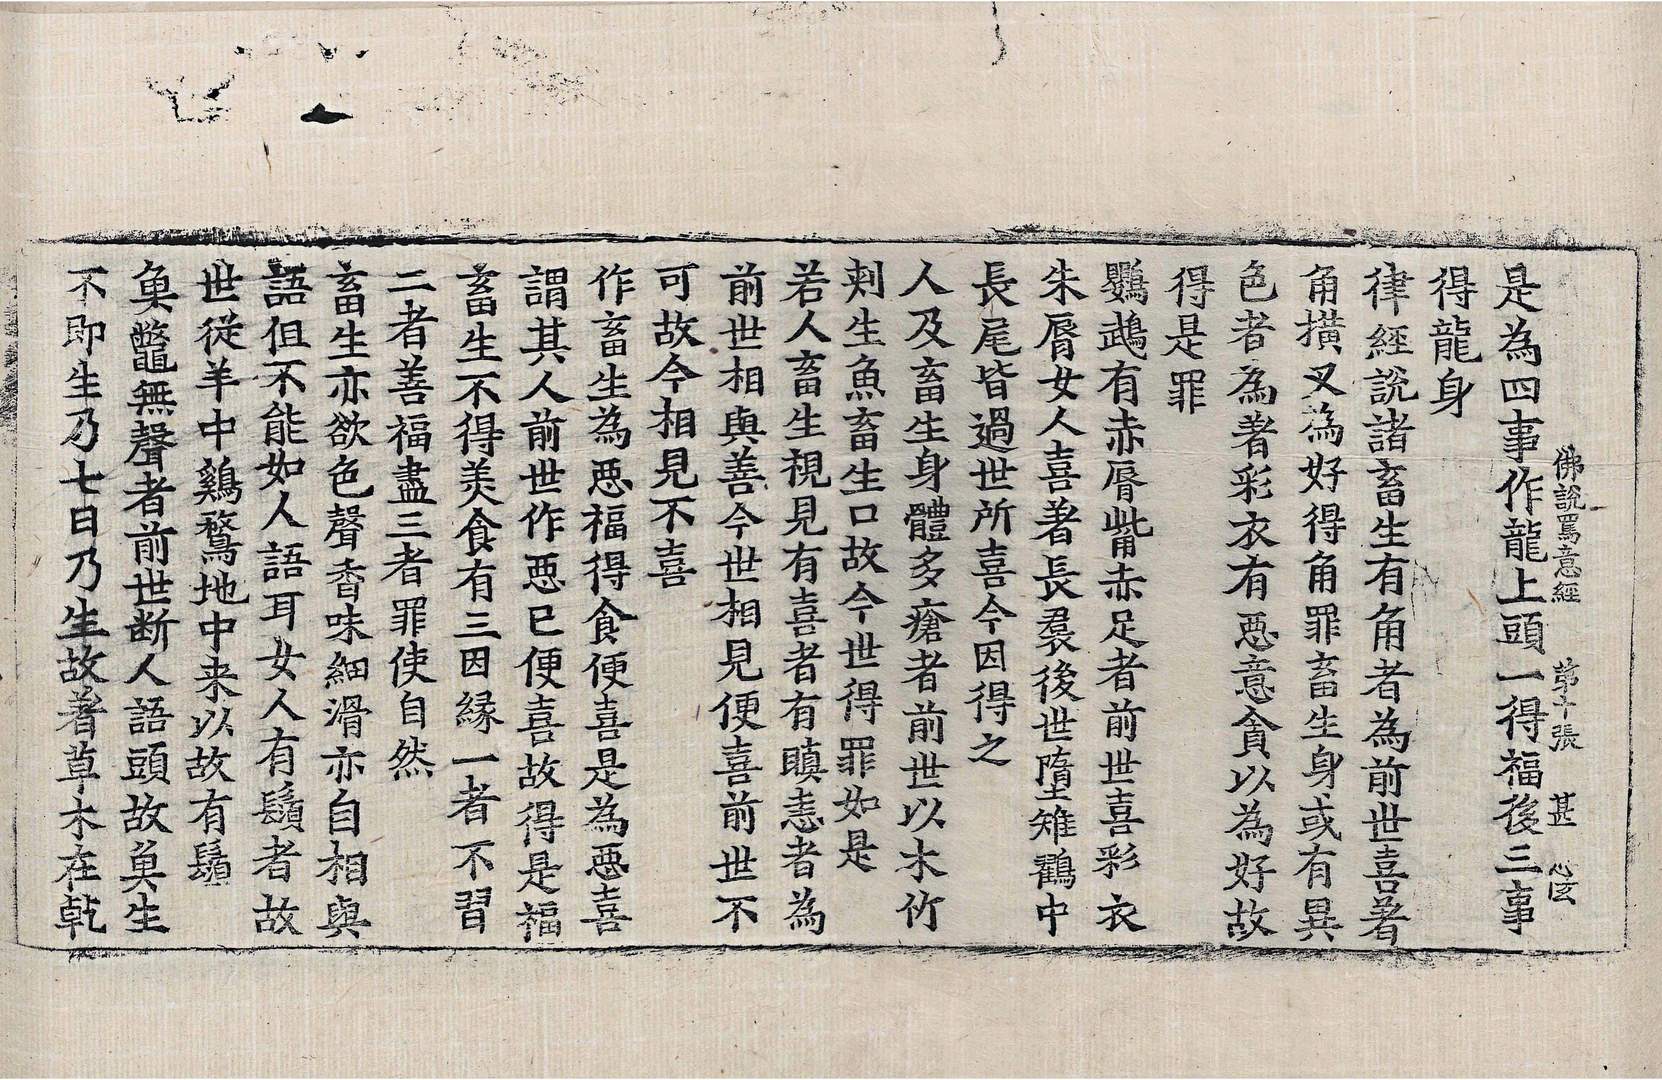 佛說罵意經 第十張 甚
是為四事作龍上頭一得福後三事
得龍身
律經說諸畜生有角者為前世喜著
角撗叉為好得角罪畜生身或有異
色者為著彩衣有惡意貪以為好故
得是罪
鸚鵡有赤脣觜赤足者前世喜彩衣
朱脣女人喜著長裠後世墮雉鸖中
長尾皆過世所喜今因得之
人及畜生身體多瘡者前世以木竹
刾生魚畜生口故今世得罪如是
若人畜生視見有喜者有瞋恚者為
前世相與善今世相見便喜前世不
可故今相見不喜
作畜生為惡福得食便喜是為惡喜
謂其人前世作惡已便喜故得是福
畜生不得美食有三因緣一者不習
二者善福盡三者罪使自然
畜生亦欲色聲香味細滑亦自相與
語但不能如人語耳女人有鬚者故
世從羊中鷄鶩地中来以故有鬚
魚鼈無聲者前世断人語頭故魚生
不即生乃七日乃生故著草木在乾